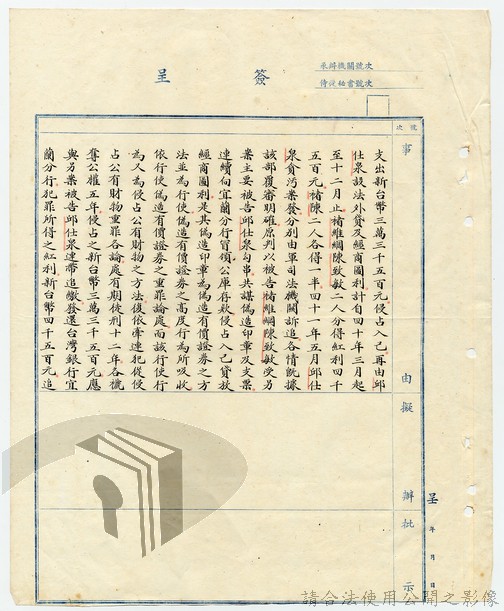 簽呈
來辦機關號次
侍從秘書號次
號次
事由
擬辦
批示
呈 年 月 日
支出新台幣三萬三千五百元侵占入己再由邱
仕泉設法外貸及經商圖利計自四十年三月起
至十二月止褚維綱陳致敏二人分得紅利四千
五百元褚陳二人各得一半四十一年五月邱仕
泉貪污案發分別由軍司法機關訴追各情既據
該部覆審明確原判以被告褚維綱陳致敏受另
案主要被告邱仕泉勾串共謀偽造印章及支票
連續向宜蘭分行冒領公庫存款侵占入己貸放
經商圖利是其偽造印章為偽造有價證券之方
法並為行使偽造有價證券之高度行為所吸收
依行使偽造有價證券之重罪論處而該行使行
為又為侵占公有財物之方法復依牽連犯從侵
占公有財物重罪各論處有期徒刑十二年各褫
奪公權五年侵占之新台幣三萬三千五百元應
與另案被告邱仕泉連帶追繳發還台灣銀行宜
蘭分行犯罪所得之紅利新台幣四千五百元追
請合法使用公開之影像